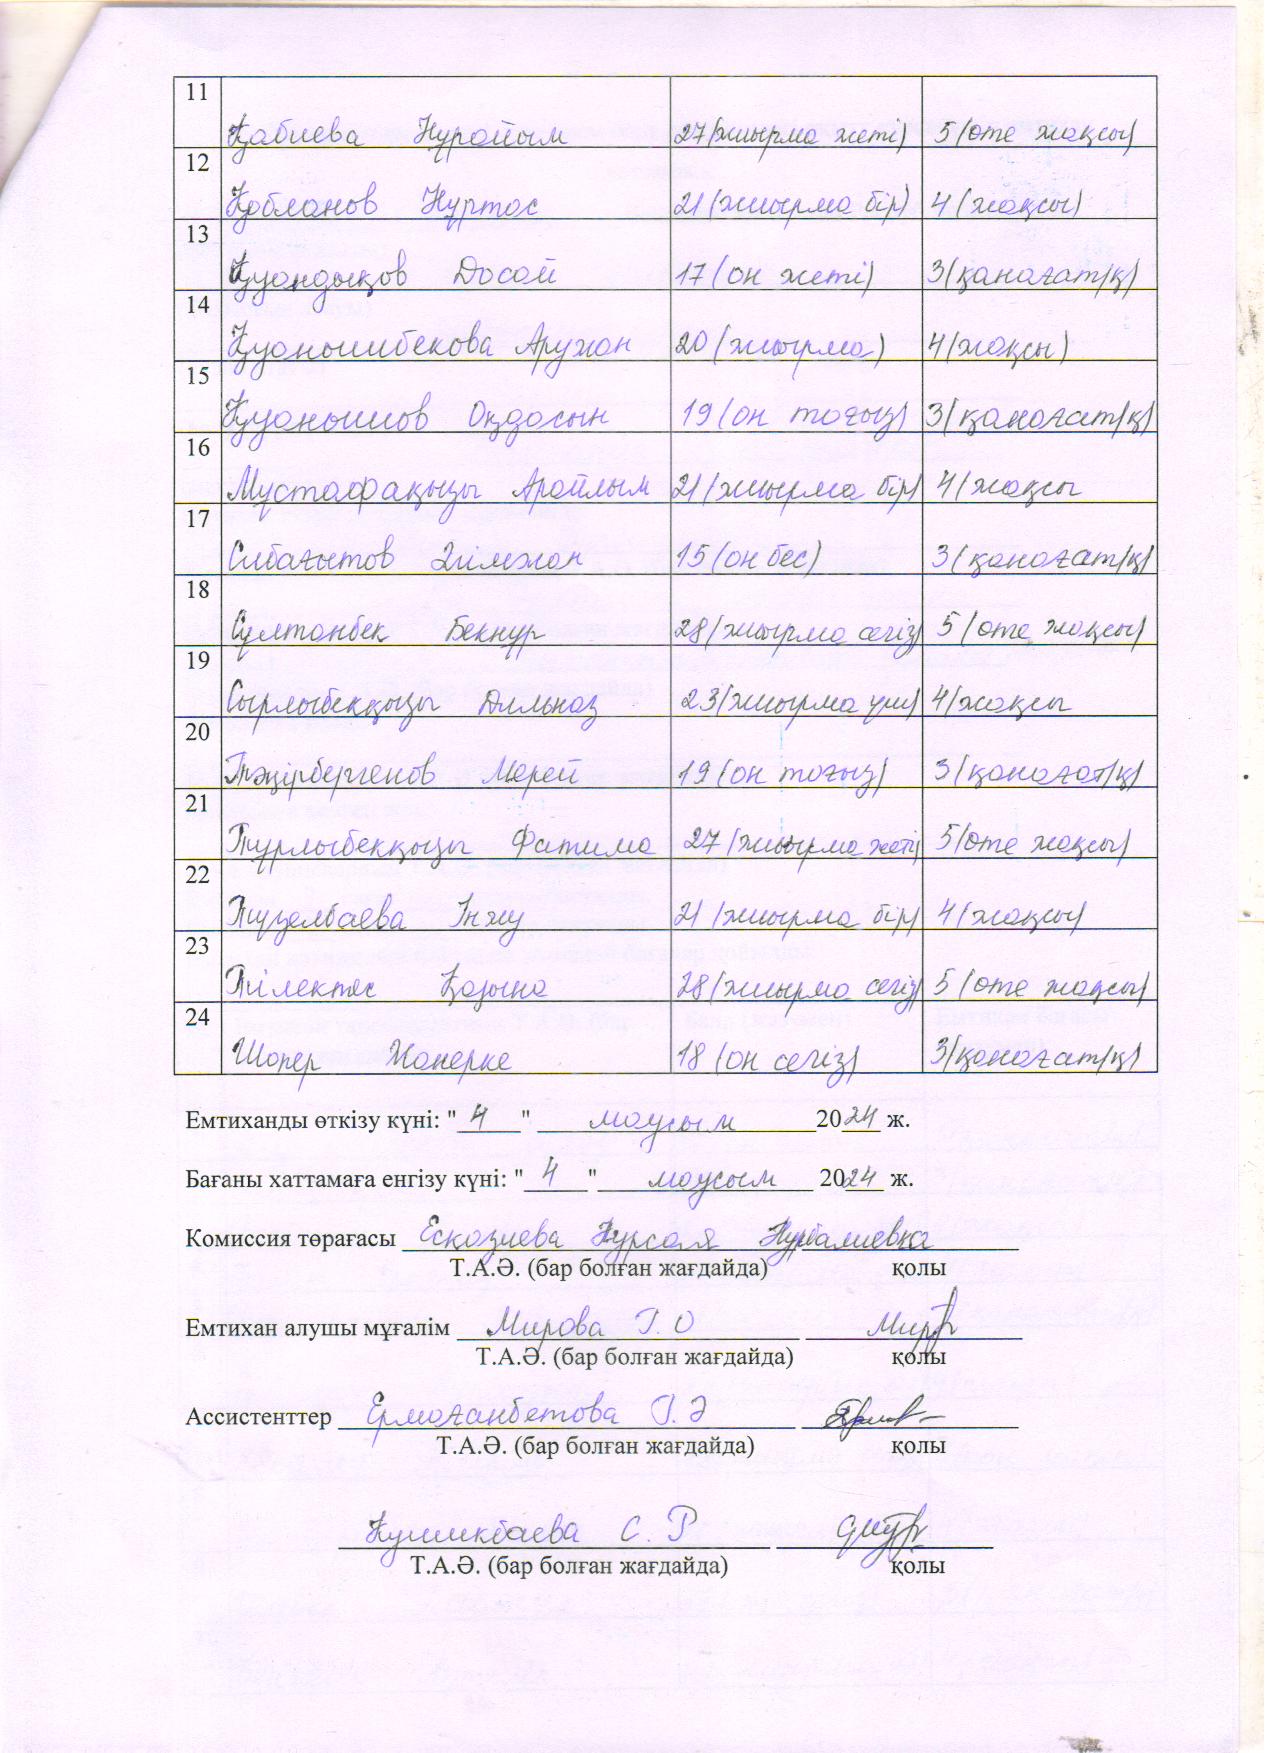 11 Қабиева Нұрайым 27(жиырма жеті) 5(өте жақсы)
12 Қобланов Нұртас 21(жиырма бір) 4(жақсы)
13 Қуандықов Досай 17(он жеті) 3(қанағат/қ)
14 Қуанышбекова Аружан 20(жиырма) 4(жақсы)
15 Қуанышов Оңдасын 19(он тоғыз) 3(қанағат/қ)
16 Мұстафақызы Арайлым 21(жиырма бір) 4(жақсы
17 Сибағытов Әлімжан 15(он бес) 3(қанағат/қ)
18 Сұлтанбек Бекнұр 28(жиырма сегіз) 5(өте жақсы)
19 Сырлыбекқызы Дильназ 23(жиырма үш) 4(жақсы
20 Тәңірбергенов Мерей 19(он тоғыз) 3(қанағат/қ)
21 Тұрлыбекқызы Фатима 27(жиырма жеті) 5(өте жақсы)
22 Түзелбаева Інжу 21(жиырма бір) 4(жақсы)
23 Тілектес Қазына 28(жиырма сегіз) 5(өте жақсы)
24 Шопер Жанерке 18(он сегіз) 3(қанағат/қ)
Емтиханды өткізу күні: "4" маусым 2024 ж.
Бағаны хаттамаға енгізу күні: "4" маусым 2024 ж.
Комиссия төрағасы Есқозиева Нұрсая Нұрбалиевқа
Т.А.Ә. (бар болған жағдайда) қолы
Емтихан алушы мұғалім Мирова Г.О
Т.А.Ә. (бар болған жағдайда) қолы
Ассистенттер Ермағанбетова Г.Ә
Т.А.Ә. (бар болған жағдайда) қолы
Кушикбаева С.Р
Т.А.Ә. (бар болған жағдайда) қолы